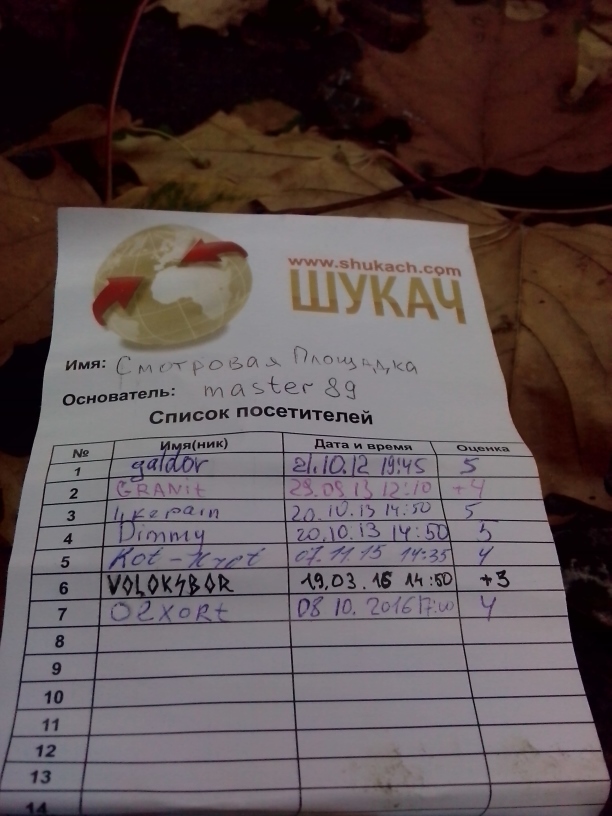 www.shukach.com
ШУКАЧ
Имя: Смотровая Площадка
Основатель: master 89
Список посетителей
№ Имя(ник) Дата и время Оценка
1 galdor 21.10.12 19:45 5
2 GRANit 12:10 +4
3 20.10.13 14:50 5
4 Dimmy 20.10.13 14:50
5 07.11.15 14:35 4
6 19.03.16 14:50 +3
7 08 10. 2016 4
8
9
10
11
12
13
14